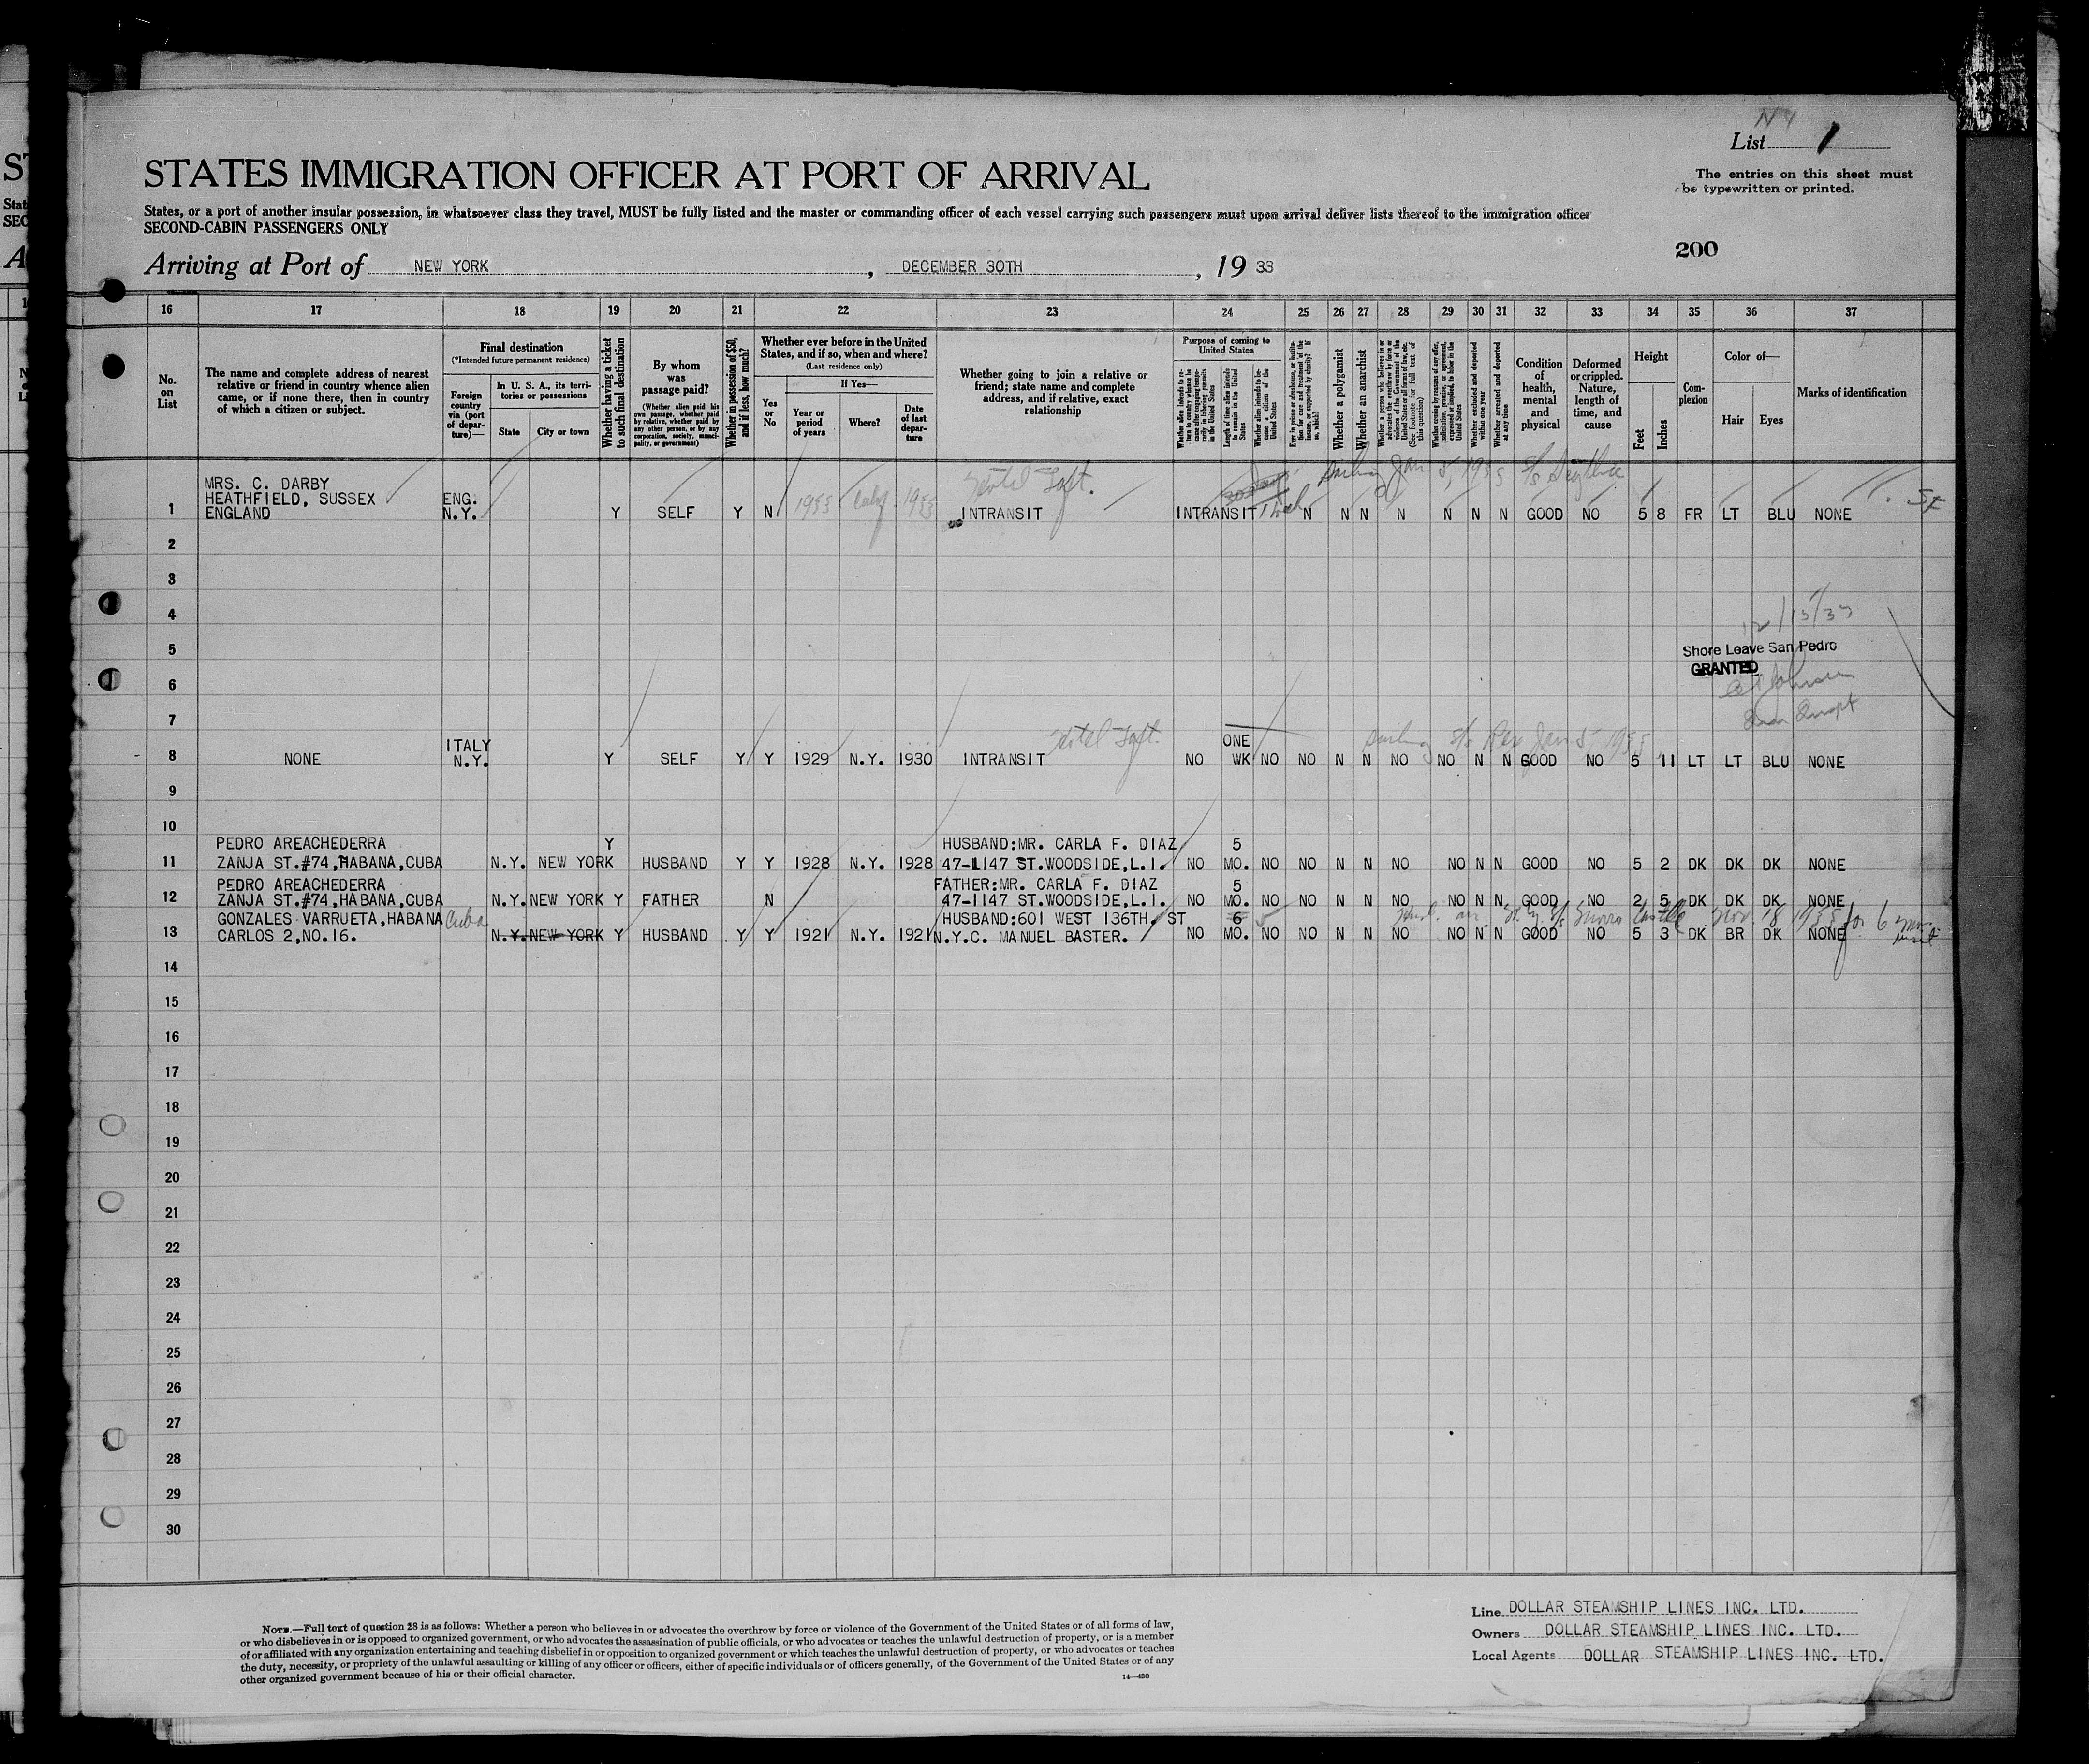 N Y
List 1
STATES IMMIGRATION OFFICER AT PORT OF ARRIVAL
The entries on this sheet must
be typewritten or printed.
States, or a port of another insular possession, in whatsoever class they travel, MUST be fully listed and the master or commanding officer of each vessel carrying such passengers must upon arrival deliver lists thereof to the immigration officer
SECOND-CABIN PASSENGERS ONLY
200
Arriving at Port of NEW YORK, DECEMBER 30TH, 19 33
16 17 18 19 20 21 22 23 24 25 26 27 28 29 30 31 32 33 34 35 36 37
No. on List
The name and complete address of nearest relative or friend in country whence alien came, or if none there, then in country of which a citizen or subject.
Final destination
(*Intended future permanent residence)
Foreign country via (port of departure)—
In U. S. A., its territories or possessions
State
City or town
Whether having a ticket to such final destination
By whom was passage paid?
(Whether alien paid his own passage, whether paid by relative, whether paid by any other person, or by any corporation, society, municipality, or government)
Whether in possession of $50, and if less, how much?
Whether ever before in the United States, and if so, when and where?
(Last residence only)
Yes or No
If Yes—
Year or period of years
Where?
Date of last departure
Whether going to join a relative or friend; state name and complete address, and if relative, exact relationship
Purpose of coming to United States
Length of time alien intends to remain in the United States
Whether alien intends to become a citizen of the United States
Whether a polygamist
Whether an anarchist
Whether excluded and deported within one year
Whether arrested and deported at any time
Condition of health, mental and physical
Deformed or crippled. Nature, length of time, and cause
Height
Feet
Inches
Complexion
Color of—
Hair
Eyes
Marks of identification
MRS. C. DARBY
HEATHFIELD, SUSSEX ENG.
1 ENGLAND N.Y. Y SELF Y N 1933 1933 INTRANSIT INTRANSIT N N N N N N N GOOD NO 5 8 FR LT BLU NONE
2
3
4
12/15/33
5
Shore Leave San Pedro
GRANTED
6
7
ITALY ONE
8 NONE N.Y. Y SELF Y Y 1929 N.Y. 1930 INTRANSIT NO WK NO NO N N NO NO N N GOOD NO 5 11 LT LT BLU NONE
9
10
PEDRO AREACHEDERRA Y HUSBAND:MR. CARLA F. DIAZ 5
11 ZANJA ST.#74,HABANA,CUBA N.Y. NEW YORK HUSBAND Y Y 1928 N.Y. 1928 47-1147 ST.WOODSIDE,L.I. NO MO. NO NO N N NO NO N N GOOD NO 5 2 DK DK DK NONE
PEDRO AREACHEDERRA FATHER:MR. CARLA F. DIAZ 5
12 ZANJA ST.#74,HABANA,CUBA N.Y. NEW YORK Y FATHER N 47-1147 ST.WOODSIDE,L.I. NO MO. NO NO N N NO NO N N GOOD NO 2 5 DK DK DK NONE
GONZALES VARRUETA,HABANA Cuba HUSBAND:601 WEST 136TH ST 6
13 CARLOS 2,NO.16. N.Y. NEW YORK Y HUSBAND Y Y 1921 N.Y. 1921 N.Y.C. MANUEL BASTER. NO MO. NO NO N N NO NO N N GOOD NO 5 3 DK BR DK NONE
14
15
16
17
18
19
20
21
22
23
24
25
26
27
28
29
30
NOTE.—Full text of question 28 is as follows: Whether a person who believes in or advocates the overthrow by force or violence of the Government of the United States or of all forms of law,
or who disbelieves in or is opposed to organized government, or who advocates the assassination of public officials, or who advocates or teaches the unlawful destruction of property, or is a member
of or affiliated with any organization entertaining and teaching disbelief in or opposition to organized government or which teaches the unlawful destruction of property, or who advocates or teaches
the duty, necessity, or propriety of the unlawful assaulting or killing of any officer or officers, either of specific individuals or of officers generally, of the Government of the United States or of any
other organized government because of his or their official character.
14—430
Line DOLLAR STEAMSHIP LINES INC. LTD.
Owners DOLLAR STEAMSHIP LINES INC. LTD.
Local Agents DOLLAR STEAMSHIP LINES INC. LTD.